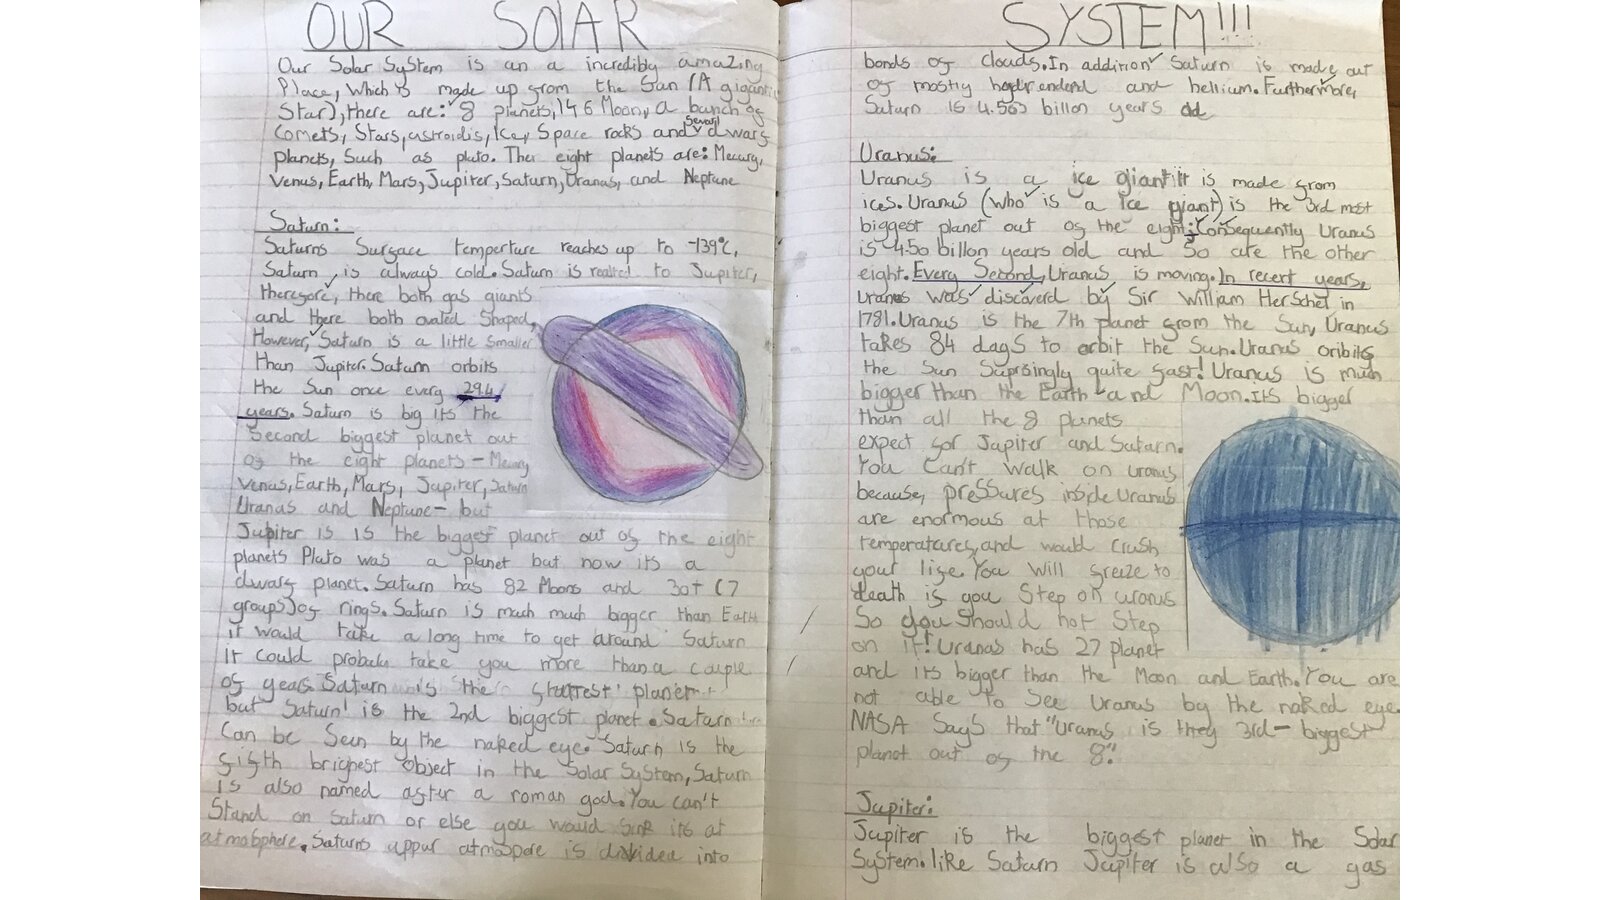 OUR SOlAR
Our Solar System is an a incredibly amazing
Place, Which is made up from the Sun (A giganti
Star), there are: 8 planets, 146 Moon, a bunch of
Comets, Stars, astroidis, Ice, Space rocks and Sevarl dwarf
planets, Such as pluto. The eight planets are: Mecury,
Venus, Earth, Mars, Jupiter, Saturn, Uranus, and Neptune
Saturn:
Saturns Surface temperture reaches up to -139°C,
Saturn is always cold. Saturn is realted to Jupiter,
therefore, there both gas giants
and there both ovaled Shaped,
However, Saturn is a little smaller
than Jupiter. Saturn orbits
the Sun once every 29.4
years. Saturn is big its the
Second biggest planet out
of the eight planets - Mecury
Venus, Earth, Mars, Jupiter, Saturn
Uranas and Neptune - but
Jupiter is is the biggest planet out of the eight
planets Pluto was a planet but now its a
dwarf planet. Saturn has 82 Moons and 30+ (7
groups) of rings. Saturn is much much bigger than Earth
it would take a long time to get around Saturn
it could probaly take you more than a couple
of years. Saturn is the planet
but Saturn is the 2nd biggest planet. Saturn
Can be Seen by the naked eye. Saturn is the
fifth brighest object in the Solar System, Saturn
is also named after a roman god. You can't
Stand on Saturn or else you would Sink its at
atmosphere. Saturns uppur atmospere is divided into
SYSTEM!!!
bonds of clouds. In addition Saturn is made out
of mostly and hellium. Furthermore,
Saturn is 4.503 billon years old
Uranus:
Uranus is a ice giant it is made from
ices. Uranus (who is a ice giant) is the 3rd most
biggest planet out of the eight; Consequently Uranus
is 4.50 billon years old and So are the other
eight. Every Second, Uranus is moving. In recent years,
Uranus was discoverd by Sir William Herschel in
1781. Uranus is the 7th planet from the Sun, Uranus
takes 84 days to orbit the Sun. Uranus oribits
the Sun Suprsingly quite fast! Uranus is much
bigger than the Earth and Moon. Its bigger
than all the 8 planets
expect for Jupiter and Saturn.
You Can't Walk on uranus
because, pressures inside Uranus
are enormous at those
temperatures, and would crush
your life. You Will freeze to
death if you Step on uranus
So you Should not Step
on it! Uranus has 27 planet
and its bigger than the Moon and Earth. You are
not able to See Uranus by the naked eye.
NASA Says that "Uranus is they 3rd- biggest
planet out of the 8."
Jupiter:
Jupiter is the biggest planet in the Solar
System. like Saturn Jupiter is also a gas